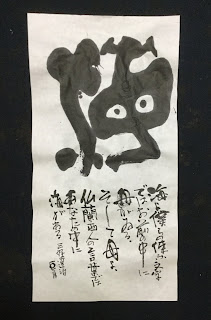 海
海よ僕らの使ふ文字
ではお前の中に
母がゐる
そして母よ
仏蘭西人の言葉では
あなたの中に
海がある 三好達治